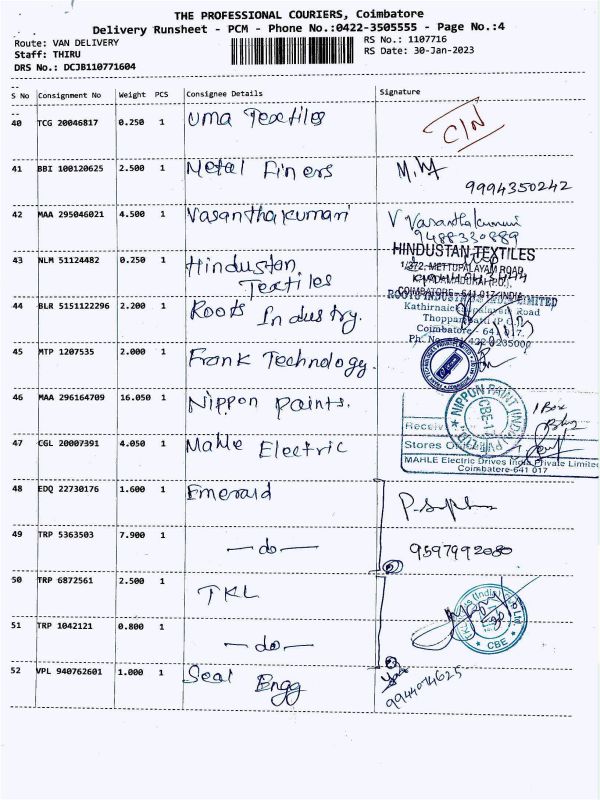 THE PROFESSIONAL COURIERS, Coimbatore
Delivery Runsheet - PCM - Phone No.:0422-3505555 - Page No.:4
Route: VAN DELIVERY RS No.: 1107716
Staff: THIRU RS Date: 30-Jan-2023
DRS No.: DCJB110771604
S No Consignment No Weight PCS Consignee Details Signature
40 TCG 20046817 0.250 1 Uma Textiles C/N
41 BBI 100120625 2.500 1 Metal Finers
9994350242
42 MAA 295046021 4.500 1 Vasanthakumari V Vasanthakumari
9488330889
43 NLM 51124482 0.250 1 Hindustan Textiles
HINDUSTAN TEXTILES
1/372, METTUPALAYAM ROAD,
COIMBATORE - 641 017. INDIA
44 BLR 5151122296 2.200 1 Roots Industry.
ROOTS INDUSTRIES INDIA LIMITED
Kathirnaicken Road
Thoppampatti (P.O.)
Coimbatore - 641 017.
45 MTP 1207535 2.000 1 Frank Technology.
46 MAA 296164709 16.050 1 Nippon paints.
NIPPON PAINT (INDIA)
CBE-1
1 Box
47 CGL 20007391 4.050 1 Mahle Electric
Stores
MAHLE Electric Drives India Private Limited
Coimbatore-641 017
48 EDQ 22730176 1.600 1 Emerald
49 TRP 5363503 7.900 1 —do—
9597992080
50 TRP 6872561 2.500 1 TKL
51 TRP 1042121 0.800 1 —do—
CBE
52 VPL 940762601 1.000 1 Seal Engg
9944074625